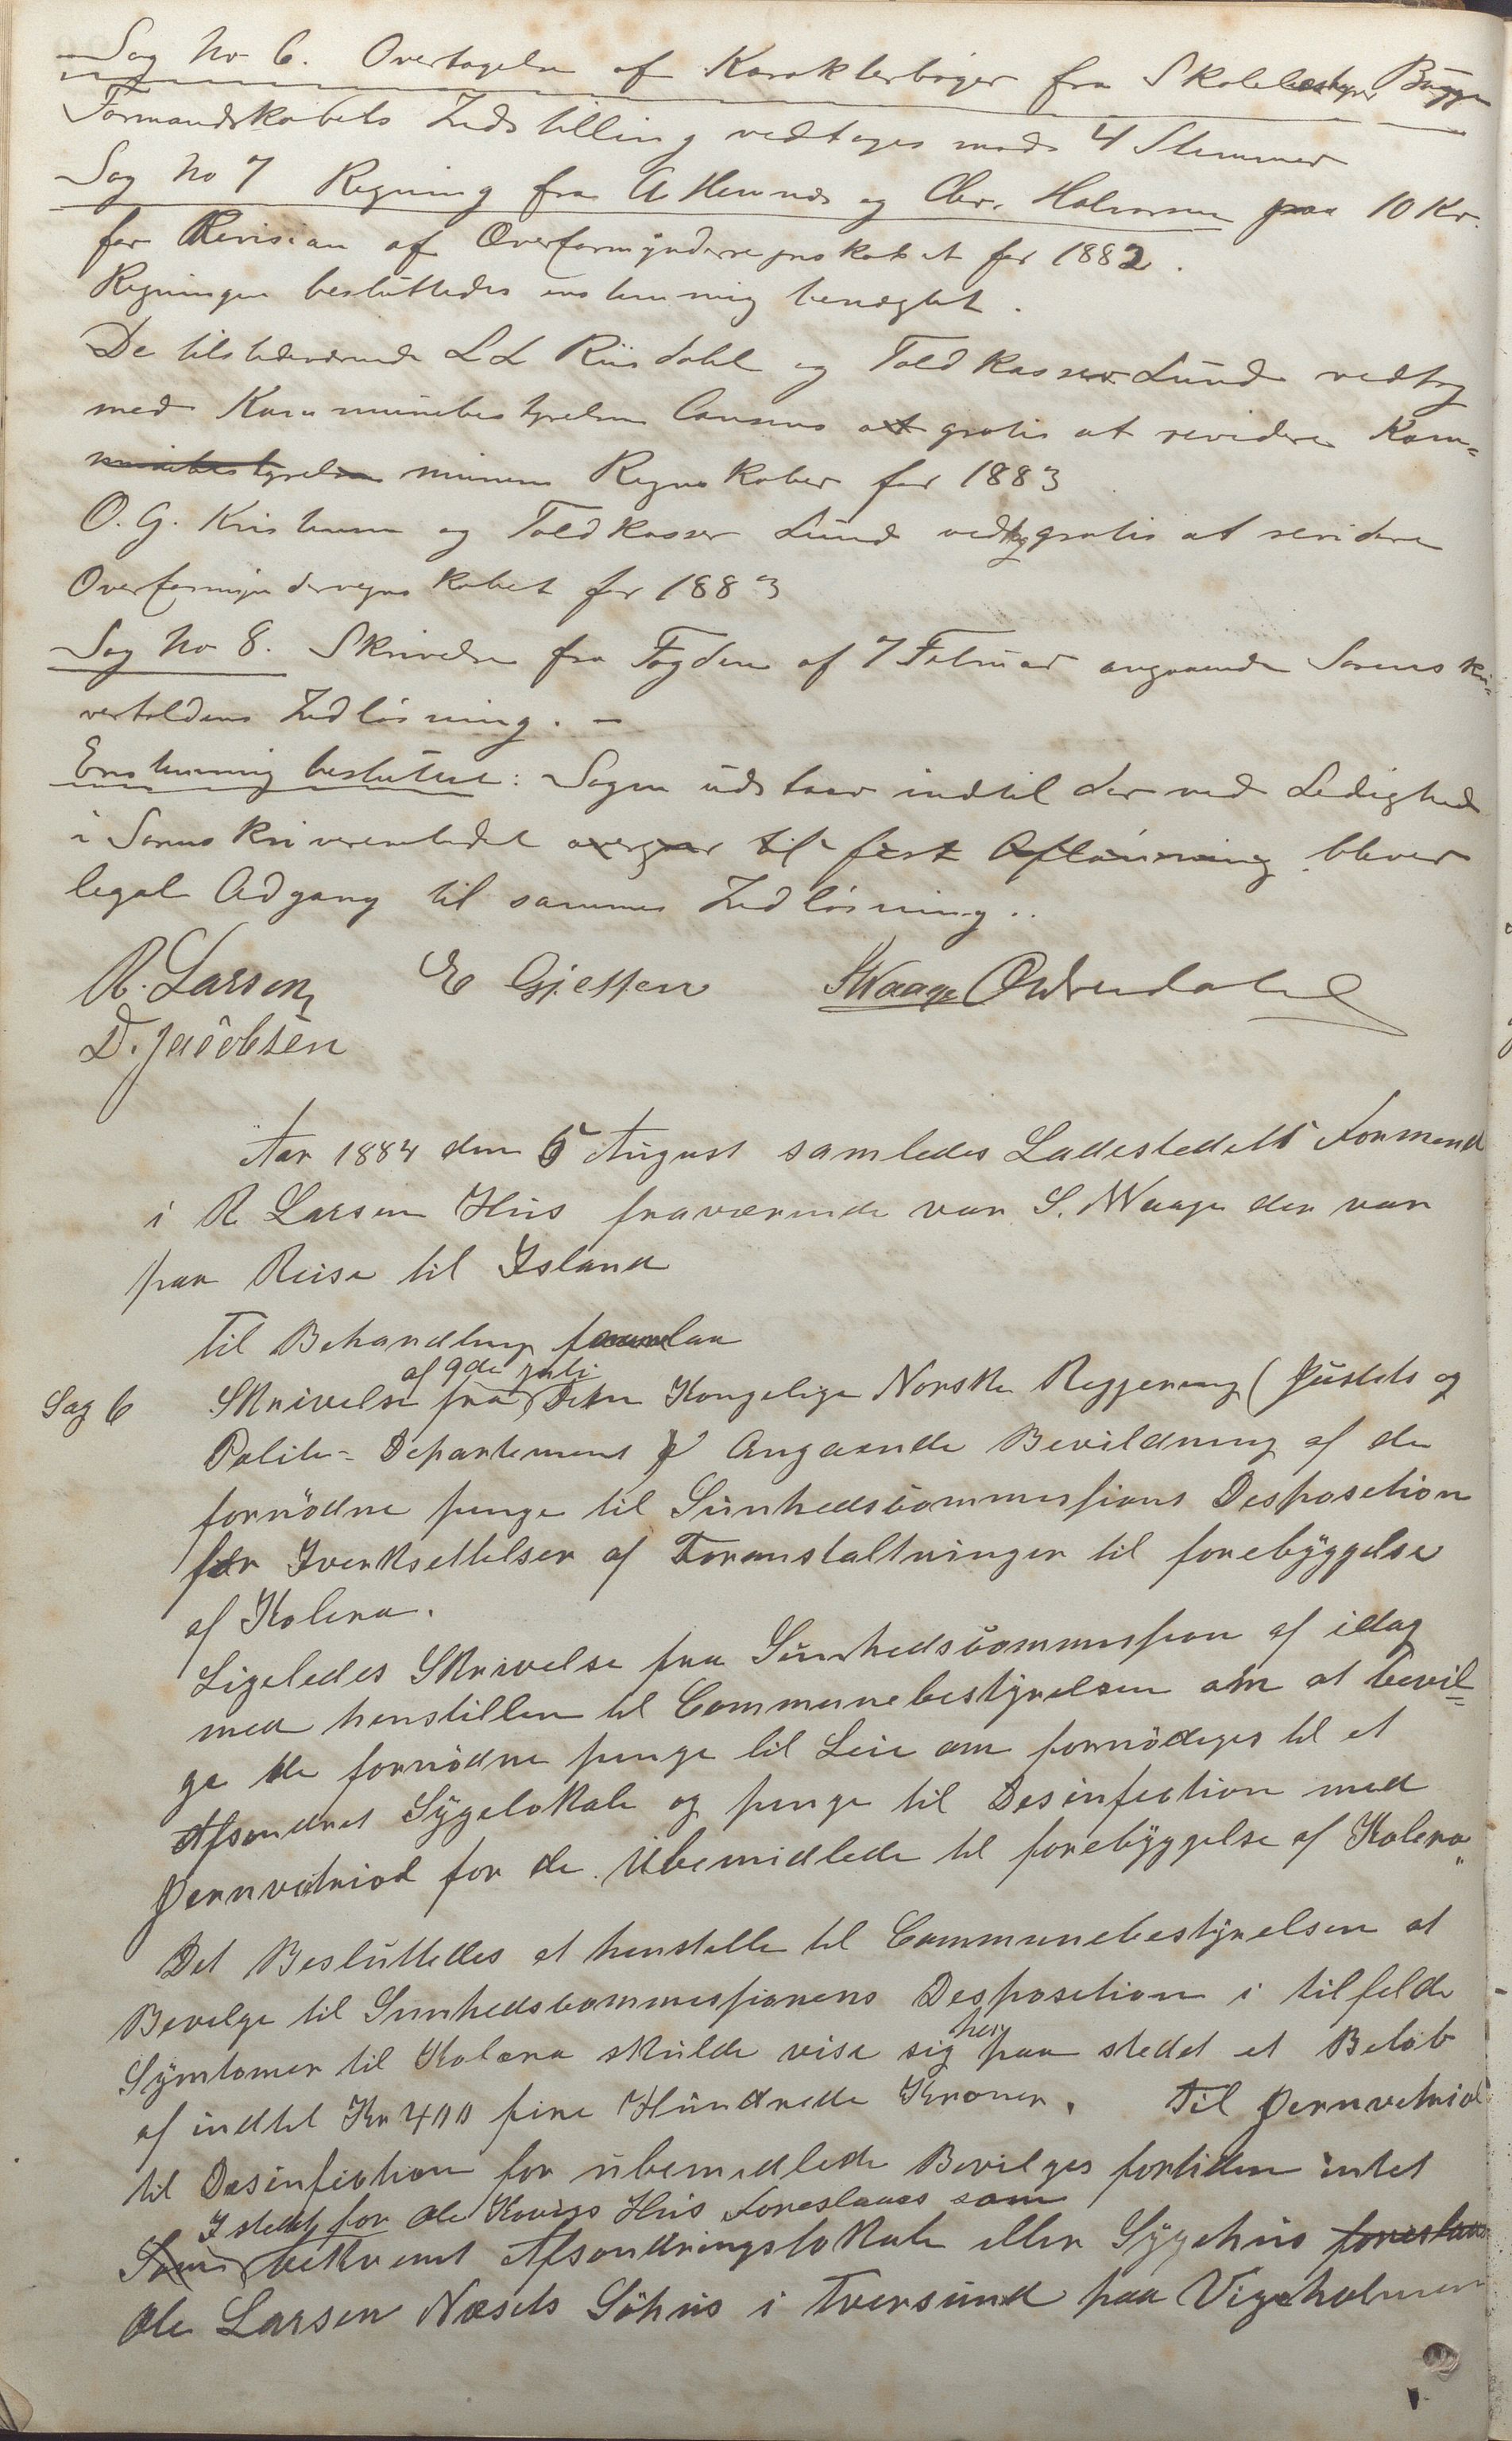 Sag No 6. Overtagelse af Karakterbøger fra Skolebestyrer Bugge
Formandskabets Indstilling vedtages mod 4 Stemmer
Sag No 7 Regning fra og Chr. Halvorsen paa 10 Kr.
for Revision af Overformynderregnskabet for 1882.
Regningen besluttedes enstemmig benægtet.
De tilstedeværende L L Riisdahl og Toldkasser Lund vedtog
med Kommunebestyrelsens Consens at gratis at revidere Kom-
munebestyrelsen munens Regnskaber for 1883
O. G. Kristensen og Toldkasser Lund vedtog gratis at revidere
Overformynderregnskabet for 1883
Sag No 8. Skrivelse fra Fogden af 7 Februar angaaende Sorenskri-
vertoldens Indløsning. –
Enstemmig besluttet: Sagen udstaar indtil der ved Ledighed
i Sorenskriverembedet overgaar til fast Aflønning bliver
legal Adgang til sammes Indløsning..
R. Larsen E Gjessen SWaage
D. Jacobsen
Aar 1884 den 5 August samledes Ladestedets Formend
i R Larsen Hus fraværende var S. Waage der var
paa Reise til Island
Til Behandling forelaa
af 9de juli
Sag 6 Skrivelse fra Den Kongelige Norske Regjering (Justits og
Politi- Departement) Angaende Bevildning af de
fornödne penge til Sunhedscommissions Desposetion
for Iverksettelser af Foranstaltninger til forebyggelse
af Kolera.
Ligeledes Skrivelse fra Sunhedscommission af idag
med henstillen til Communebestyrelsen om at bevil-
ge de fornödne penge til Leie om fornödiges til et
Afsondret Sygelokale og penge til Desinfection med
Jernvitriol for de Ubemidlede til forebyggelse af Kolera"
Det Besluttedes at henstille til Communebestyrelsen at
Bevilge til Sunhedscommissionens Desposetion i tilfelde
Symtomer til Kolera skulde vise sig her paa stedet et Belöb
af indtil Kr 400 fire Hundrede Kroner. Til Jernvetriol
til Desinfection for ubemidlede Bevilges fortiden intet
I stedet for Ole Hus Foreslaaes som
Som bekvemt Afsondringslokale eller Sygehus foreslaaes
Ole Larsen Næsets Söhus i Tversund paa Vigeholmen